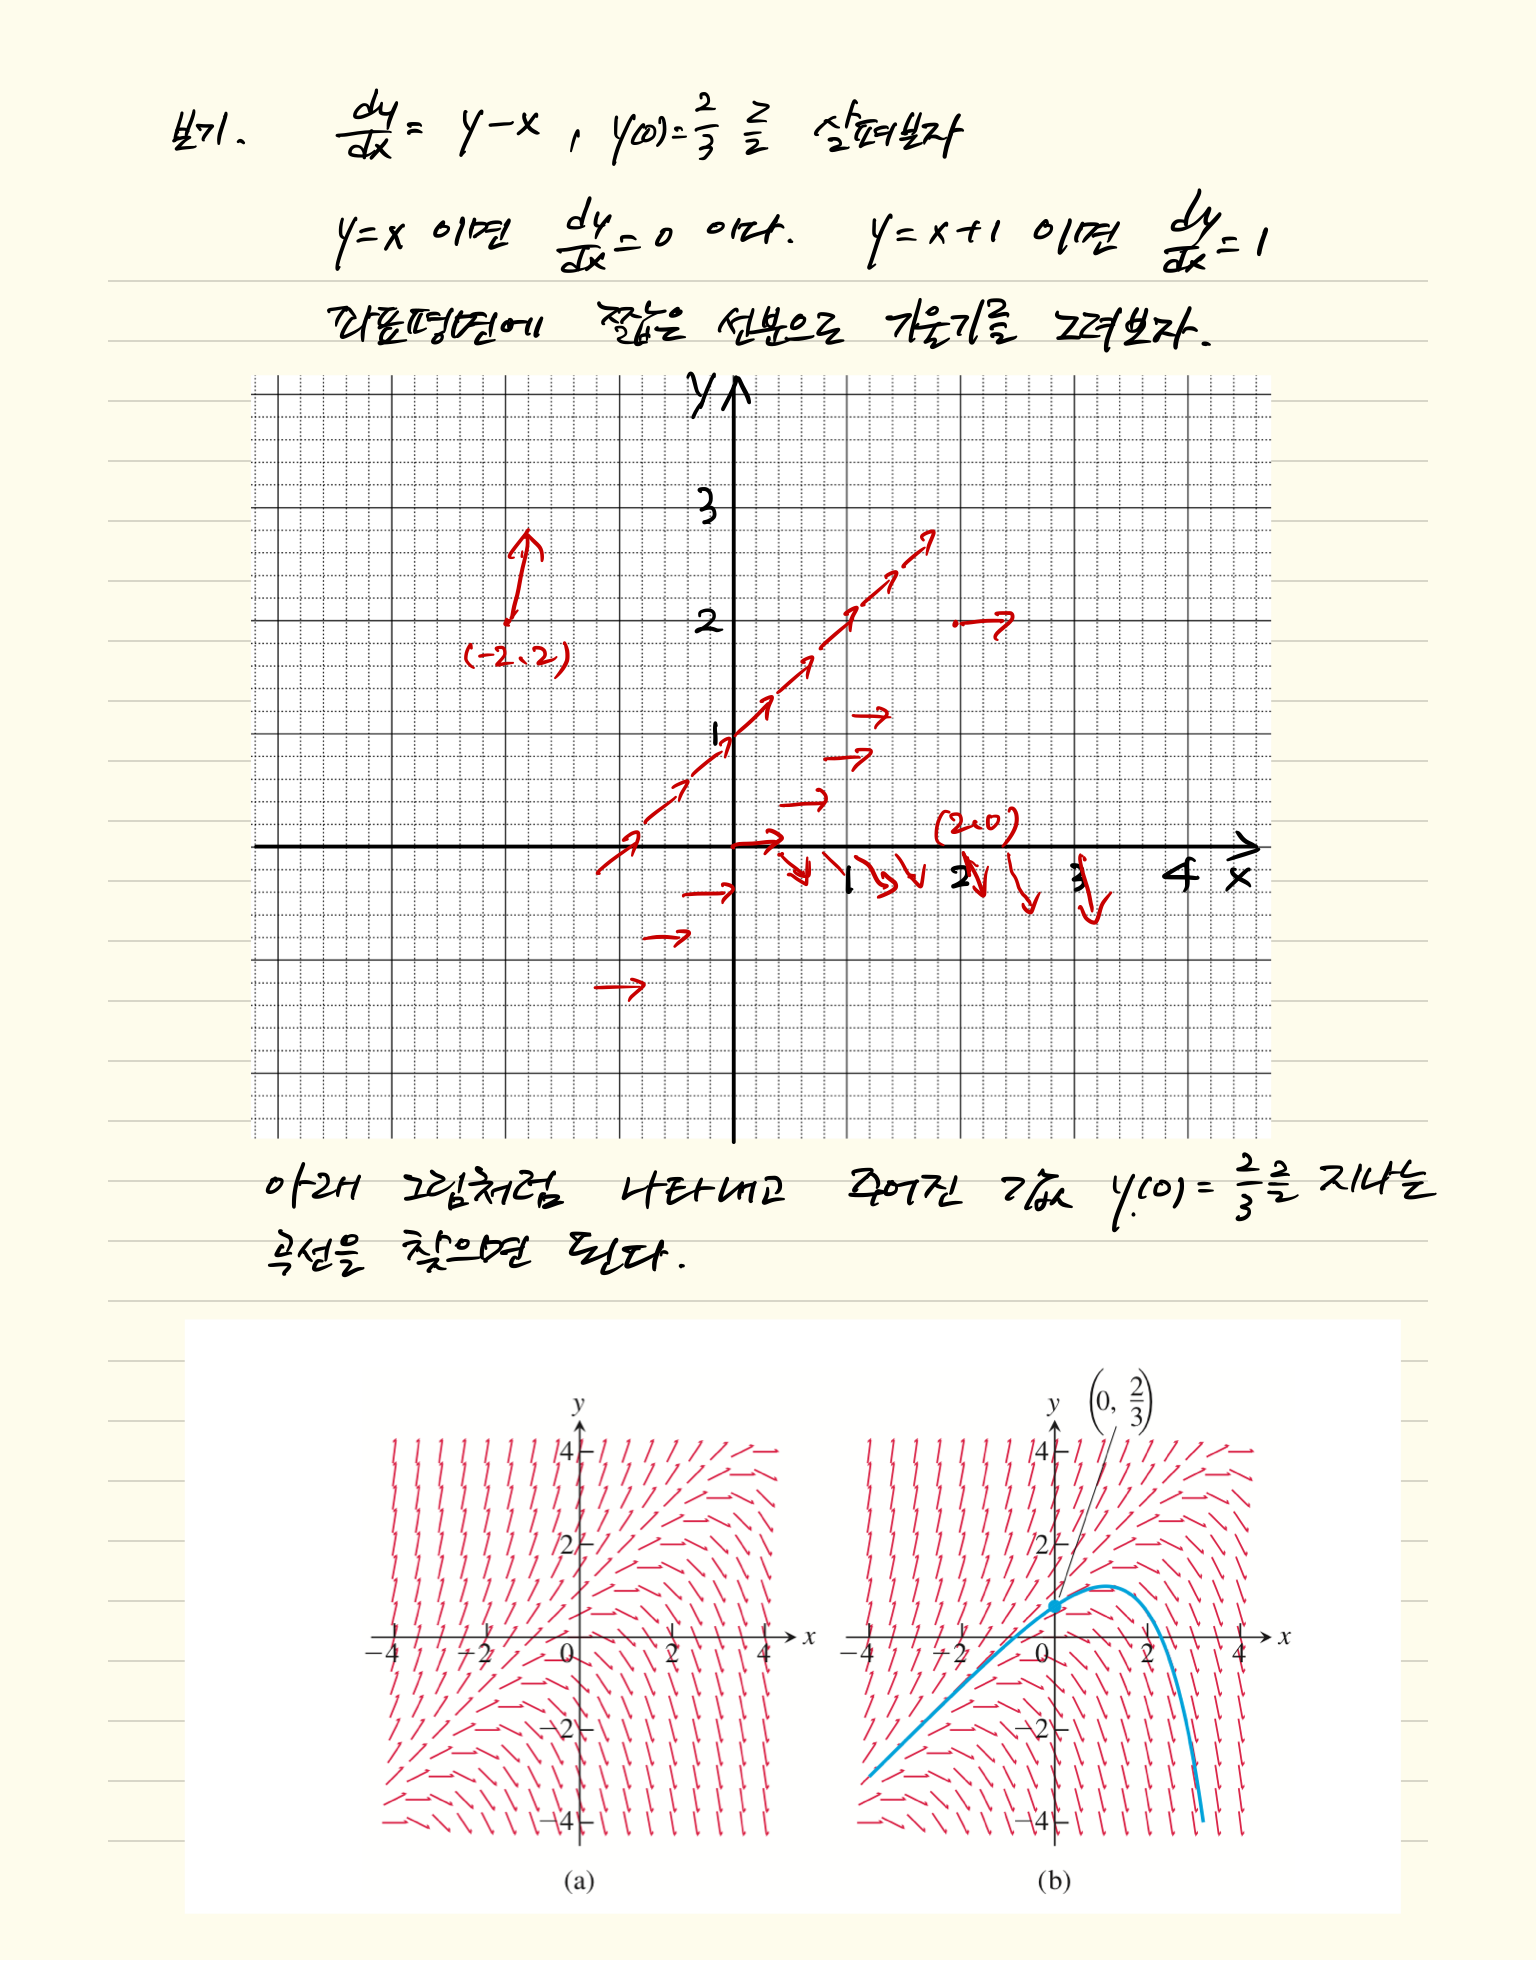 보기. dy/dx = y-x , y(0)=2/3 를 살펴보자
y=x 이면 dy/dx=0 이다. y=x+1 이면 dy/dx=1
좌표평면에 짧은 선분으로 기울기를 그려보자.
y
3
2
(-2,2)
1
(2,0)
1 2 3 4 x
아래 그림처럼 나타내고 주어진 값 y(0)=2/3를 지나는
곡선을 찾으면 된다.
(0, 2/3)
y y
4 4
2 2
-4 -2 0 2 4 x -4 -2 0 2 4 x
-2 -2
-4 -4
(a) (b)